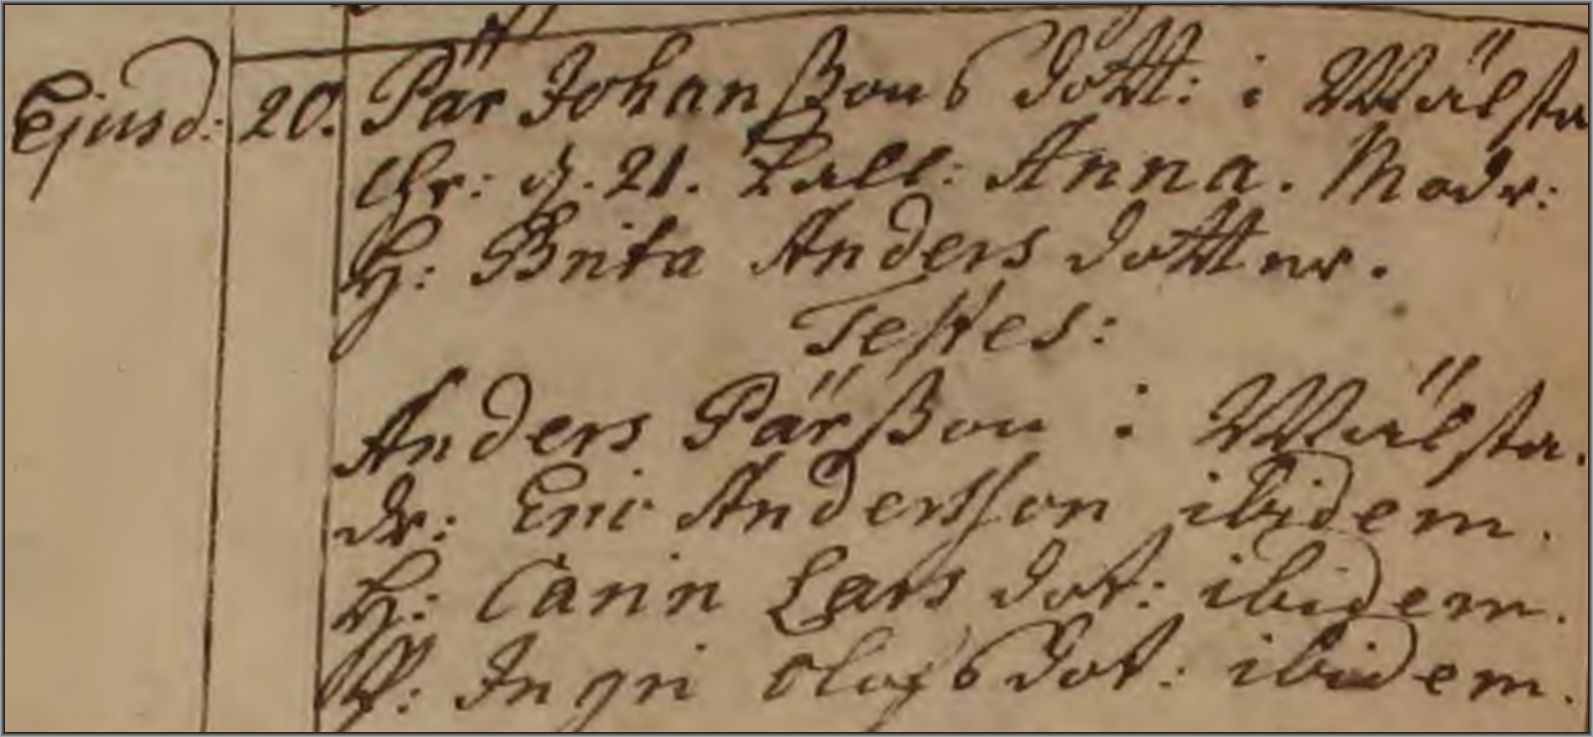 Ejusd: 20. Pär Johanßons dött: i Wälsta
Chr: d. 21. Kall: Anna. Modr:
H: Brita Anders dotter.
Testes:
Anders Pärßon i Wälsta.
dr: Eric Andersson ibidem.
H: Carin Lars dot: ibidem.
P: Ingri Olofs dot: ibidem.